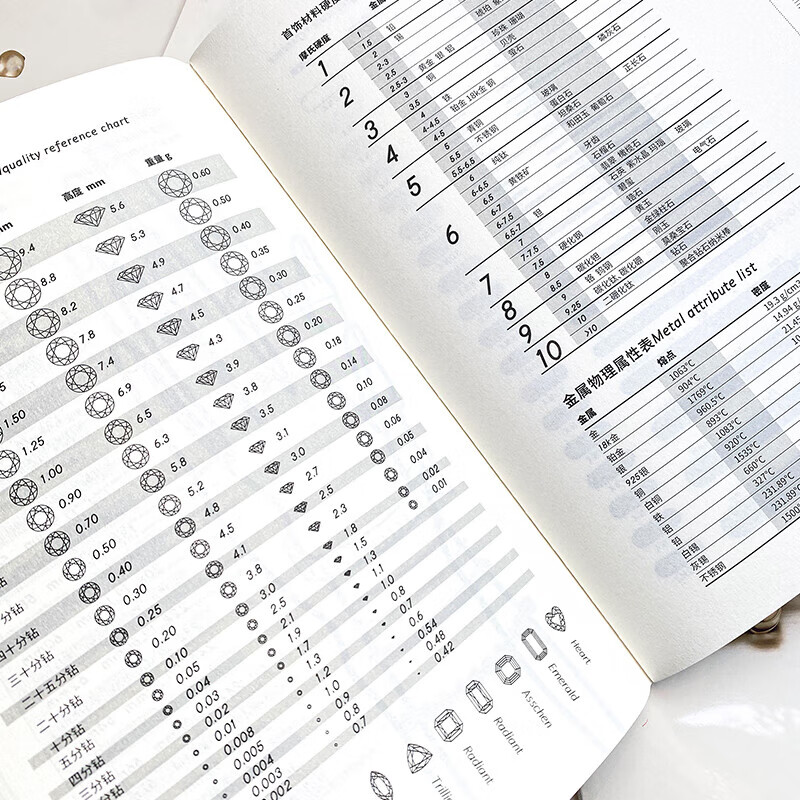 /quality reference chart
mm 高度 mm 重量 g
9.4 5.6 0.60
8.8 5.3 0.50
8.2 4.9 0.40
7.8 4.7 0.35
1.50 7.4 4.5 0.30
1.25 6.9 4.3 0.25
1.00 6.5 3.9 0.20
0.90 6.3 3.8 0.18
0.70 5.8 3.5 0.14
分钻 0.50 5.2 3.1 0.10
四十分钻 0.40 4.8 3.0 0.08
三十分钻 0.30 4.5 2.7 0.06
二十五分钻 0.25 4.1 2.5 0.05
二十分钻 0.20 3.8 2.3 0.04
十分钻 0.10 3.0 1.8 0.02
五分钻 0.05 2.5 1.5 0.01
四分钻 0.04 2.1 1.3
三分钻 0.03 1.9 1.1
0.02 1.7 1.0
0.01 1.3 0.8
0.008 1.2 0.7
0.005 1.0 0.6
0.004 0.9 0.54
0.003 0.8 0.48
0.002 0.7 0.42
Trilli
Radiant
Radiant
Asschen
Emerald
Heart
首饰材料硬度
摩氏硬度
金属
1
2
3
4
5
6
7
8
9
10
1 铅
1.5 锡
2
2-3 黄金 银 铝
2.5 铜
2.5-3
3 铁
3.5 铂金 18k金 钢
4
4-4.5 青铜
4.5 不锈钢
5
5.5 纯钛
5.5-6.5
6 黄铁矿
6-6.5
6.5
6-7
6-7.5
6.5-7 钽
7
7-7.5 硬化钢
7.5
8 碳化钽
8.5 铬 钨钢
9 碳化钛 碳化硼
9.25 二硼化钛
10
>10
琥珀
珍珠 珊瑚
贝壳
萤石
磷灰石
正长石
玻璃
蛋白石
坦桑石
和田玉 葡萄石
牙齿
石榴石
玻璃
翡翠 橄榄石
石英 紫水晶 玛瑙
电气石
碧玺
锆石
黄玉
金绿柱石
刚玉
莫桑宝石
钻石
聚合钻石纳米棒
金属物理属性表Metal attribute list
金属 熔点 密度
金 1063°C 19.3 g/cm
18k金 904°C 14.94 g
铂金 1769°C 21.45
银 960.5°C
925银 893°C
铜 1083°C
白铜 920°C
铁 1535°C
铝 660°C
铅 327°C
白锡 231.89°C
灰锡 231.89°
不锈钢 1500